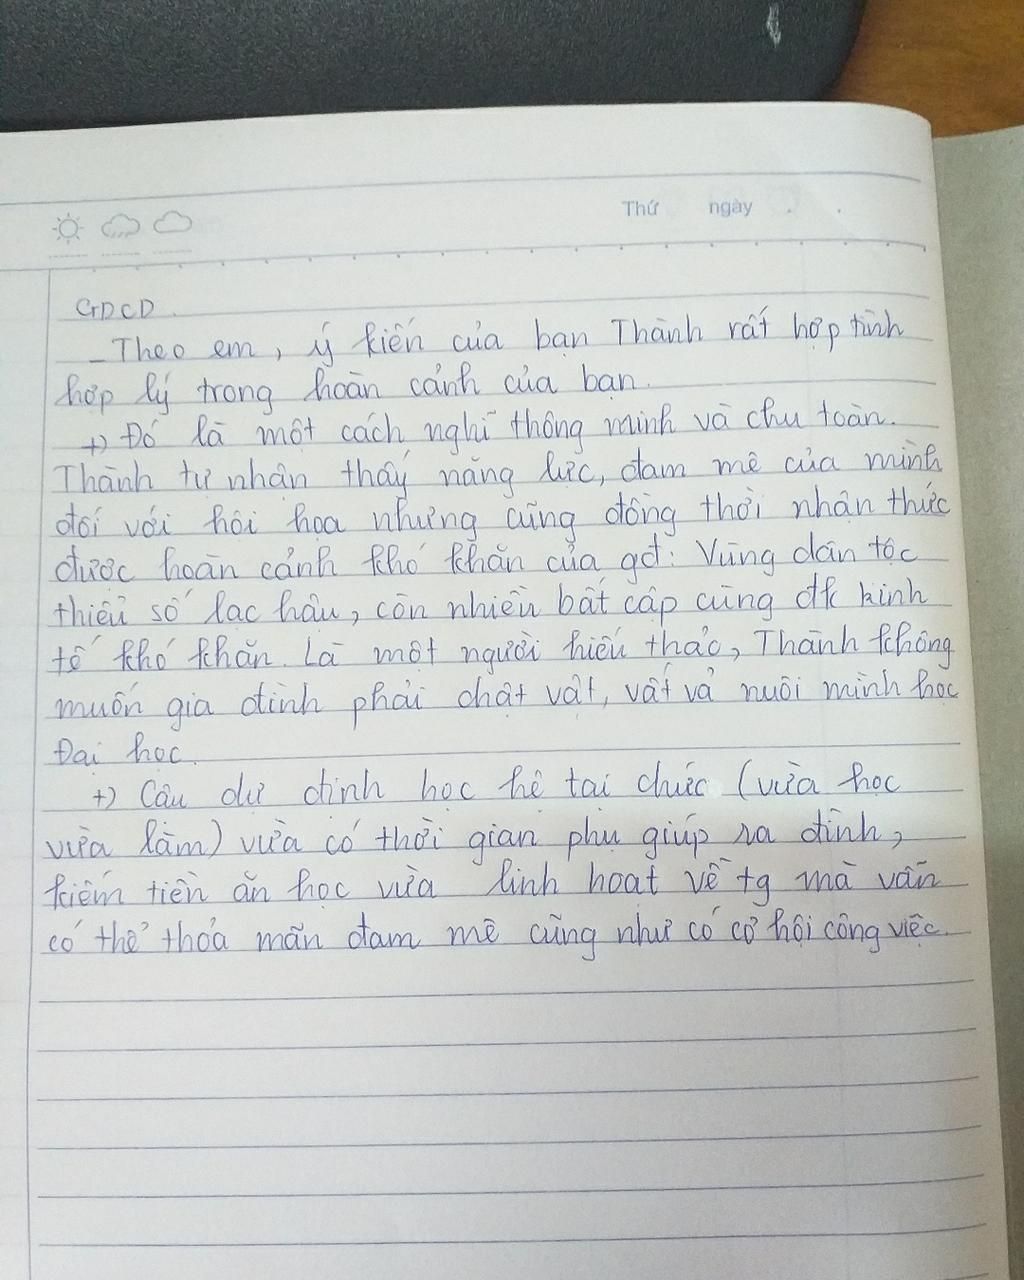 Thứ ngày
GDCD
- Theo em, ý kiến của bạn Thành rất hợp tình
hợp lý trong hoàn cảnh của bạn.
+) Đó là một cách nghĩ thông minh và chu toàn.
Thành tự nhận thấy năng lực, đam mê của mình
đối với hội họa nhưng cũng đồng thời nhận thức
được hoàn cảnh khó khăn của gđ: Vùng dân tộc
thiểu số lạc hậu, còn nhiều bất cập cùng đk kinh
tế khó khăn. Là một người hiếu thảo, Thành không
muốn gia đình phải chật vật, vất vả nuôi mình học
Đại học.
+) Cậu dự định học hệ tại chức (vừa học
vừa làm) vừa có thời gian phụ giúp ra đình,
kiếm tiền ăn học vừa linh hoạt về tg mà vẫn
có thể thỏa mãn đam mê cũng như có cơ hội công việc.